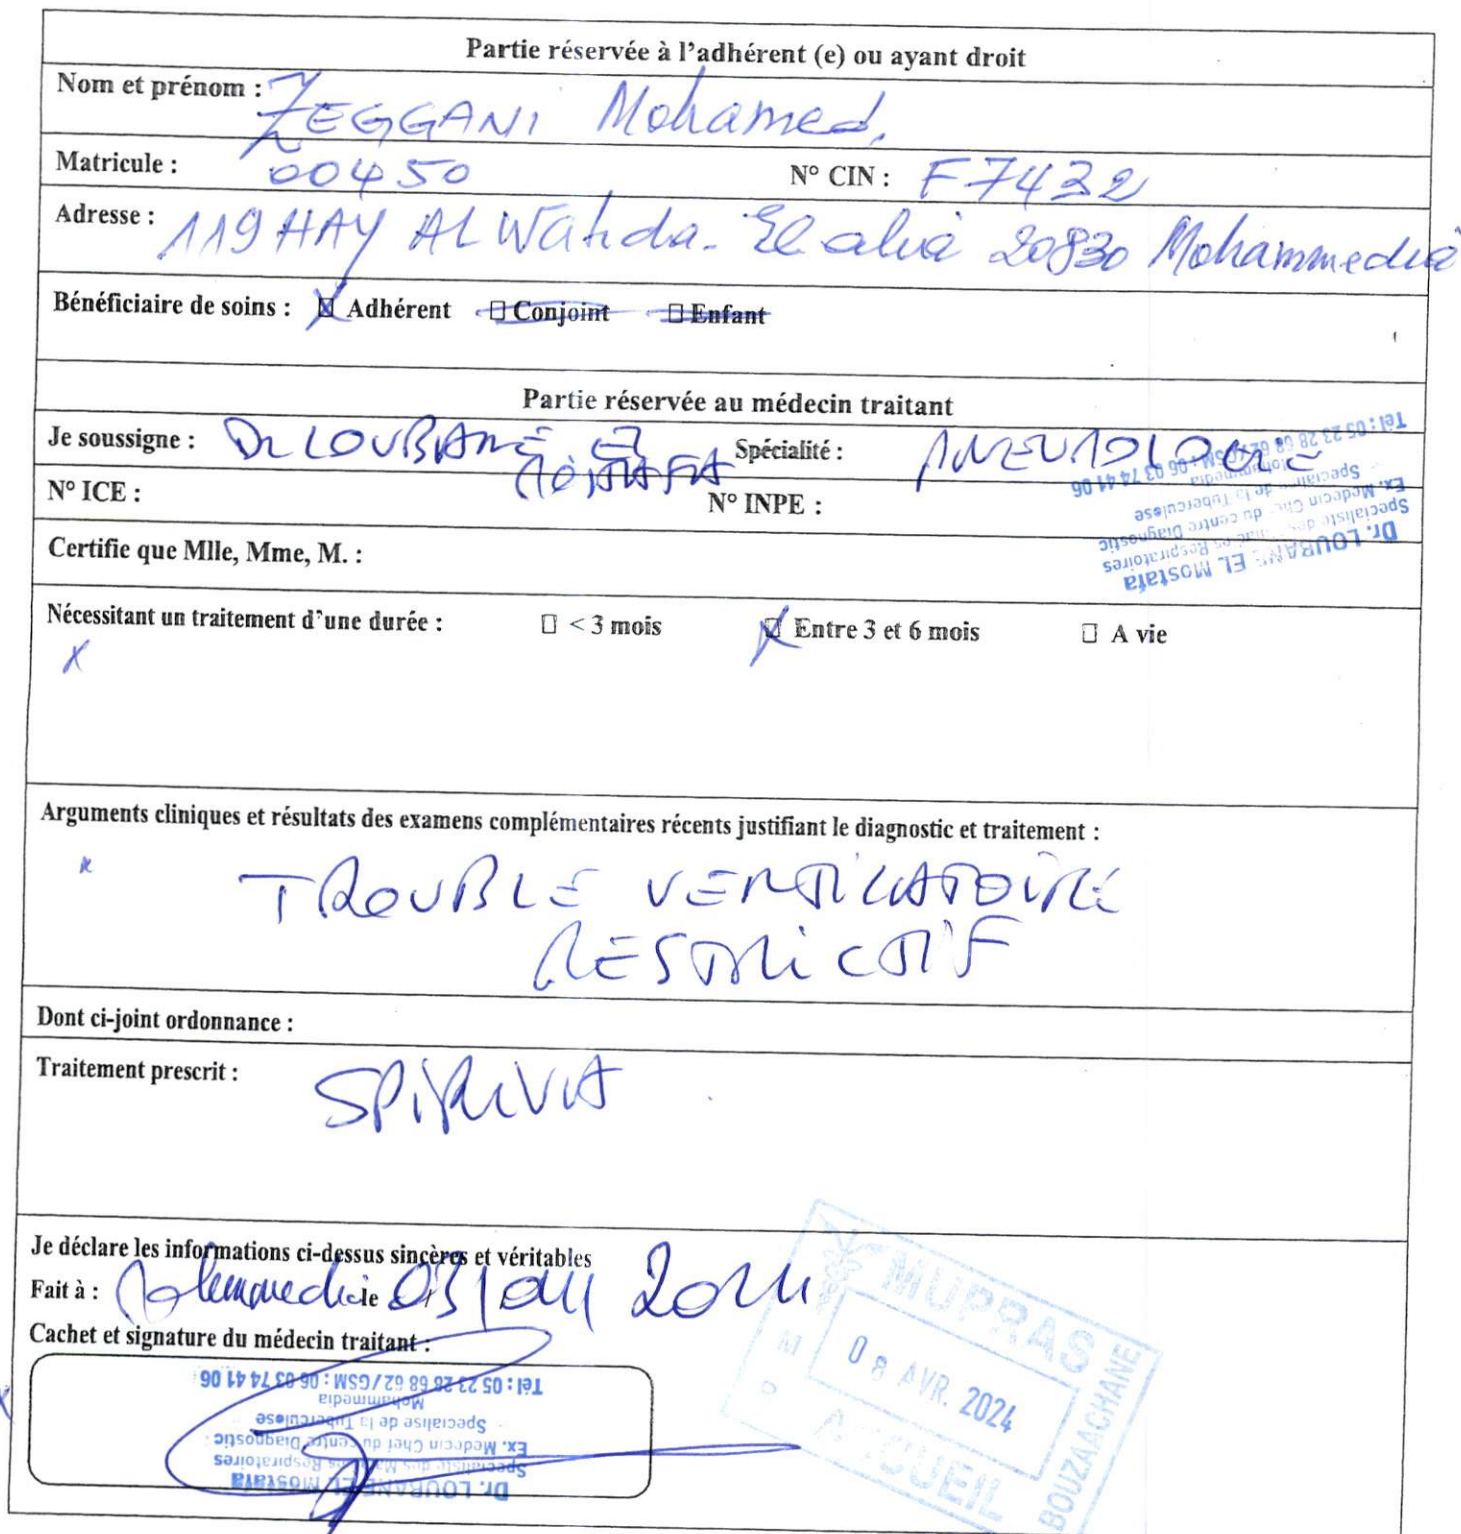 Partie réservée à l'adhérent (e) ou ayant droit
Nom et prénom : ZEGGANI Mohamed.
Matricule : 00450 N° CIN : F7432
Adresse : 119 HAY AL Wahda. El alia 20830 Mohammedia
Bénéficiaire de soins : ☒ Adhérent □ Conjoint □ Enfant
Partie réservée au médecin traitant
Je soussigne : Dr LOUBANE El MOSTAFA Spécialité : PNEUMOLOGUE
N° ICE : N° INPE :
Dr. LOUBANE EL Mostafa
Specialiste des Maladies Respiratoires
Ex. Medecin Chef du centre Diagnostic
Specialise de la Tuberculese
Mohammedia
Tél : 05 23 28 68 62 / GSM : 06 03 74 41 06
Certifie que Mlle, Mme, M. :
Nécessitant un traitement d'une durée : □ < 3 mois ☒ Entre 3 et 6 mois □ A vie
X
Arguments cliniques et résultats des examens complémentaires récents justifiant le diagnostic et traitement :
TROUBLE VENTILATOIRE
RESTRICTIF
Dont ci-joint ordonnance :
Traitement prescrit : SPIRIVA
Je déclare les informations ci-dessus sincères et véritables
Fait à : Mohammedia le 03/04/2024
Cachet et signature du médecin traitant :
Dr. LOUBANE EL Mostafa
Specialiste des Maladies Respiratoires
Ex. Medecin Chef du centre Diagnostic
Specialise de la Tuberculese
Mohammedia
Tél : 05 23 28 68 62 / GSM : 06 03 74 41 06
MUPRAS
08 AVR. 2024
ACCUEIL
BOUZAACHANE